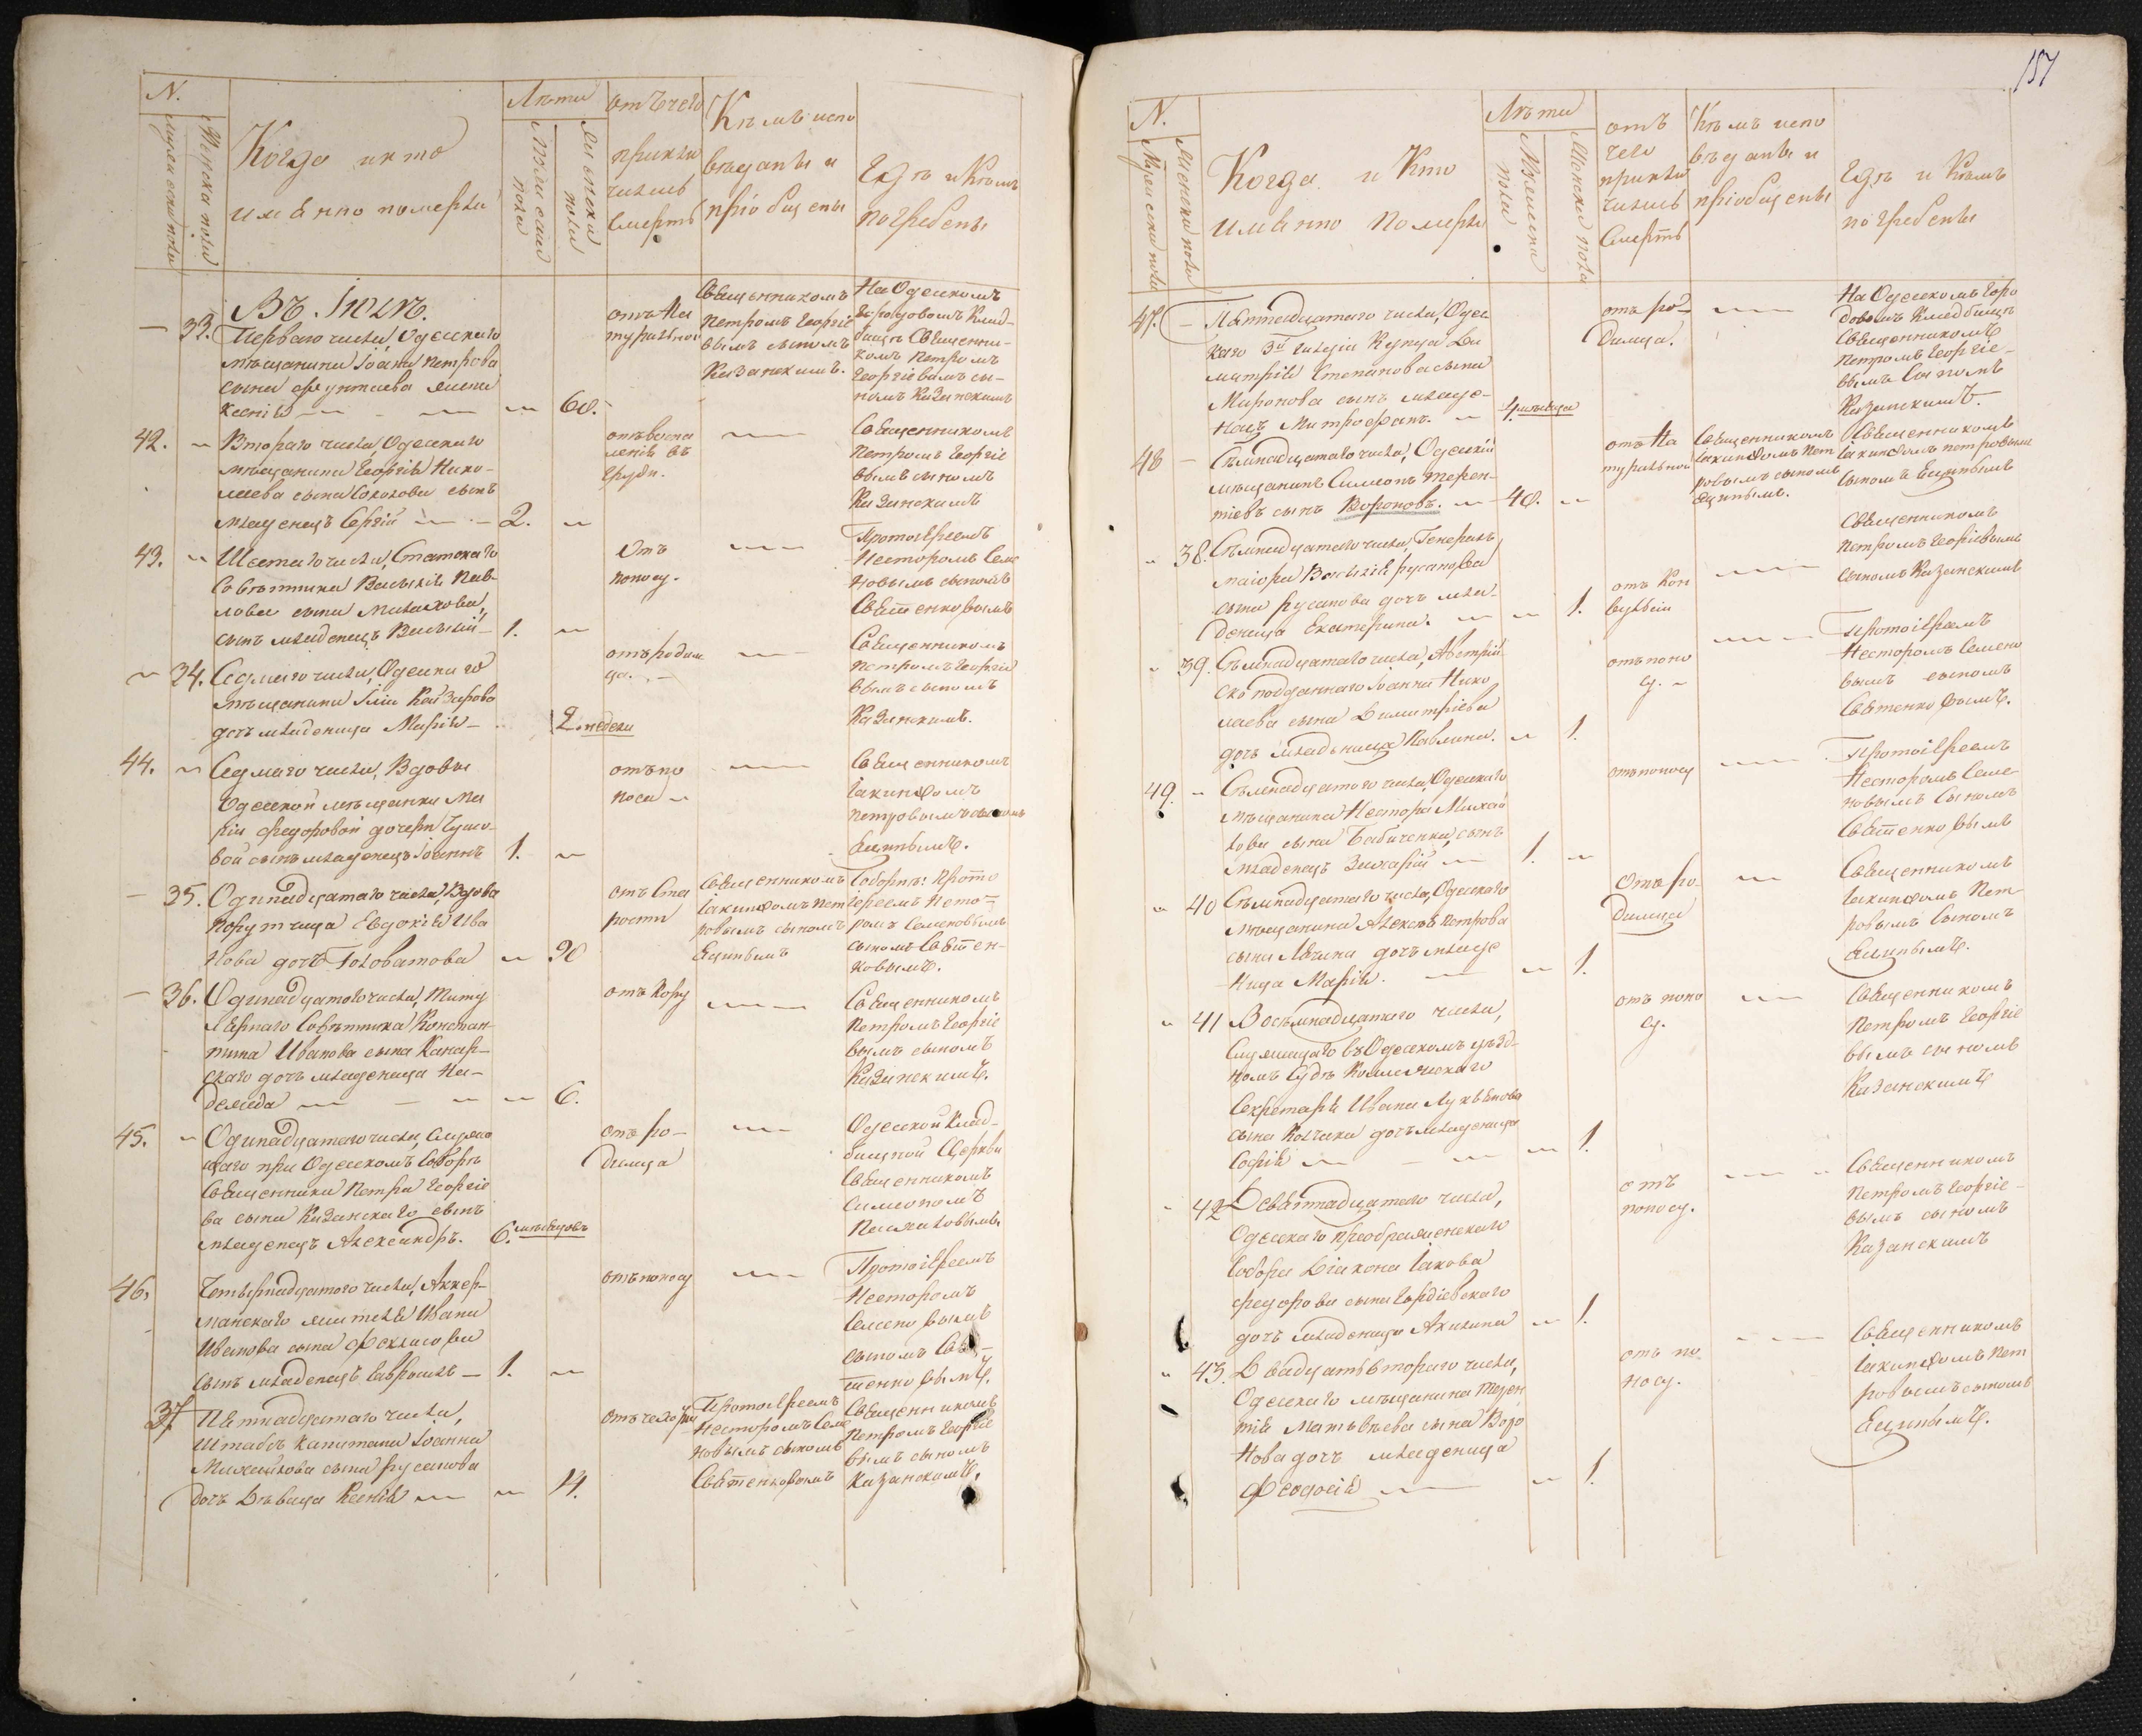 N.
Мужеска пола
Женска пола
Когда и кто
именно померли
Лѣта
Мужеска пола
Женска пола
отъ чего
приклю
чилась
смерть
Кѣмъ испо
вѣданы и
пріобщены
Гдѣ и Кѣмъ
погребены
Въ Іюлѣ.
33. Перваго числа, Одесскаго
мѣщанина Іоанна Петрова
сына жена
Ксенія 60.
отъ На
туральной
Священникомъ
Петромъ Георгіе
вымъ сыномъ
Казанскимъ.
На Одесскомъ
городовомъ Клад-
бищѣ Священни-
комъ Петромъ
Георгіевымъ сы-
номъ Казанскимъ
42. Втораго числа, Одесскаго
мѣщанина Георгія Нико-
лаева сына Соколова сынъ
младенецъ Сергій 2.
отъ воспа
ленія въ
груди.
Священникомъ
Петромъ Георгіе
вымъ сыномъ
Казанскимъ
43. Шестаго числа, Статскаго
Совѣтника Василія Пав-
лова сына Михалкова,
сынъ младенецъ Василій 1.
Отъ
поносу.
Протоіереемъ
Несторомъ Семе
новымъ сыномъ
34. Седмаго числа, Одесскаго
мѣщанина Иліи
дочь младеница Марія 2. недели
отъ родим
ца.
Священникомъ
Петромъ Георгіе
вымъ сыномъ
Казанскимъ.
44. Седмаго числа, Вдовы
Одесской мѣщанки Ма
ріи Федоровой дочери
вой сынъ младенецъ Іоаннъ 1.
отъ по
носа
Священникомъ
Іакинфомъ
Петровымъ сыномъ
Ещинымъ.
35. Одинадцатаго числа, Вдова
Поручица Евдокія Ива
нова дочь Головатова 90
отъ Ста
рости
Священникомъ
Іакинфомъ Пет
ровымъ сыномъ
Ещинымъ
Соборнъ: Прото
іереемъ Несто=
ромъ Семеновымъ
сыномъ
36. Одинадцатаго числа, Титу
лярнаго Совѣтника Констан-
тина Иванова сына Канар-
скаго дочь младеница На-
дежда 6.
отъ Кору
Священникомъ
Петромъ Георгіе
вымъ сыномъ
Казанскимъ.
45. Одинадцатаго числа, Служа
щаго при Одесскомъ Соборѣ
Священника Петра Георгіе
ва сына Казанскаго сынъ
младенецъ Александръ. 6. мѣсяцовъ
отъ ро-
димца
Одесской Клад-
бищной Церкви
Священникомъ
Симеономъ
46. Четырнадцатаго числа, Аккер-
манскаго жителя Ивана
Иванова сына
сынъ младенецъ Гавріилъ 1.
отъ поносу
Протоіереемъ
Несторомъ
Семеновымъ
сыномъ
37. Пятнадцатаго числа,
Штабсъ Капитана Іоанна
Михайлова сына Русанова
дочь Дѣвица Ксенія 14.
Протоіереемъ
Несторомъ Семе
новымъ сыномъ
Священникомъ
Петромъ Георгіе
вымъ сыномъ
Казанскимъ.
157
N.
Мужеска пола
Женска пола
Когда и Кто
именно Померли
Лѣта
Мужеска пола
Женска пола
отъ
чего
приклю
чилась
смерть
Кѣмъ испо
вѣданы и
пріобщены
Гдѣ и Кѣмъ
погребены
47. Пятнадцатаго числа, Одес
каго 3й гильдіи Купца Ди
митрія Степанова сына
Миронова сынъ младе-
нецъ Митрофанъ. 4. мѣсяца
отъ ро-
димца.
На Одесскомъ Горо
довомъ Кладбищѣ
Священникомъ
Петромъ Георгіе-
вымъ Сыномъ
Казанскимъ.
48 Съмнадцатаго числа, Одесскій
мѣщанинъ Симеонъ Терен-
тіевъ сынъ Вороновъ. 48.
отъ На
туральной
Священникомъ
Іакинфомъ Пет
ровымъ сыномъ
Ещинымъ.
Священникомъ
Іакинфомъ Петровымъ
сыномъ Ещинымъ
38. Съмнадцатаго числа, Генералъ
маіора Василія Русанова
сына Русанова дочь мла-
деница Екатерина. 1.
отъ Кон
вульсіи
Священникомъ
Петромъ Георгіевымъ
сыномъ Казанскимъ
39. Съмнадцатаго числа, Австрій
ско подданнаго Іоанна Нико
лаева сына Димитріева
дочь младеница Павлина. 1.
отъ поно
су.
Протоіереемъ
Несторомъ Семено
вымъ сыномъ
49. Съмнадцатаго числа, Одесскаго
мѣщанина Нестора Михай
лова сына Бабиченка, сынъ
младенецъ Захарій 1.
отъ поносу
Протоіереемъ
Несторомъ Семе-
новымъ Сыномъ
40 Съмнадцатаго числа, Одесскаго
мѣщанина Алексѣя Петрова
сына дочь младе
ница Марія. 1.
Отъ ро-
димца
Священникомъ
Іакинфомъ Пет-
ровымъ Сыномъ
Ещинымъ.
41 Восъмнадцатаго числа,
Служащаго въ Одесскомъ уѣзд-
номъ Судѣ Коллежскаго
Секретаря Ивана Лукьянова
сына дочь младеница
Софія 1.
отъ поно
су.
Священникомъ
Петромъ Георгіе
вымъ сыномъ
Казанскимъ
42 Девятнадцатаго числа,
Одесскаго Преображенскаго
Собора Діакона Іакова
Федорова сына Гордіевскаго
дочь младеница Акилина 1.
отъ
поносу.
Священникомъ
Петромъ Георгіе-
вымъ сыномъ
Казанскимъ
43. Двадцать втораго числа,
Одесскаго мѣщанина Терен
тія Матвѣева сына Воро
нова дочь младеница
Феодосія 1.
отъ по
носу.
Священникомъ
Іакинфомъ Пет
ровымъ сыномъ
Ещинымъ.